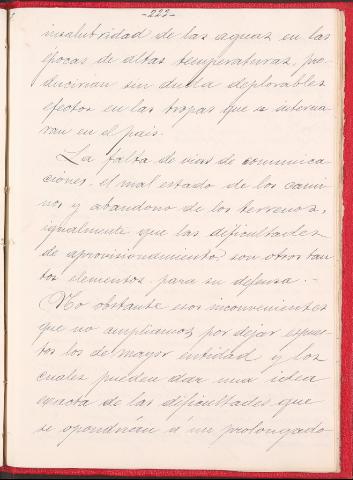 -222-
insalubridad de las aguas en las
épocas de altas temperaturas, pro-
ducirian sin duda deplorables
efectos en las tropas que se interna-
ran en el pais.
La falta de vias de comunica-
ciones, el mal estado de los cami-
nos y abandono de los terrenos,
igualmente que las dificultades
de aprovisionamiento, son otros tan-
tos elementos para su defensa.-
No obstante esos inconvenientes
que no ampliamos, por dejar expues-
tos los de mayor entidad y los
cuales pueden dar una idea
exacta de las dificultades que
se opondrian a un prolongado